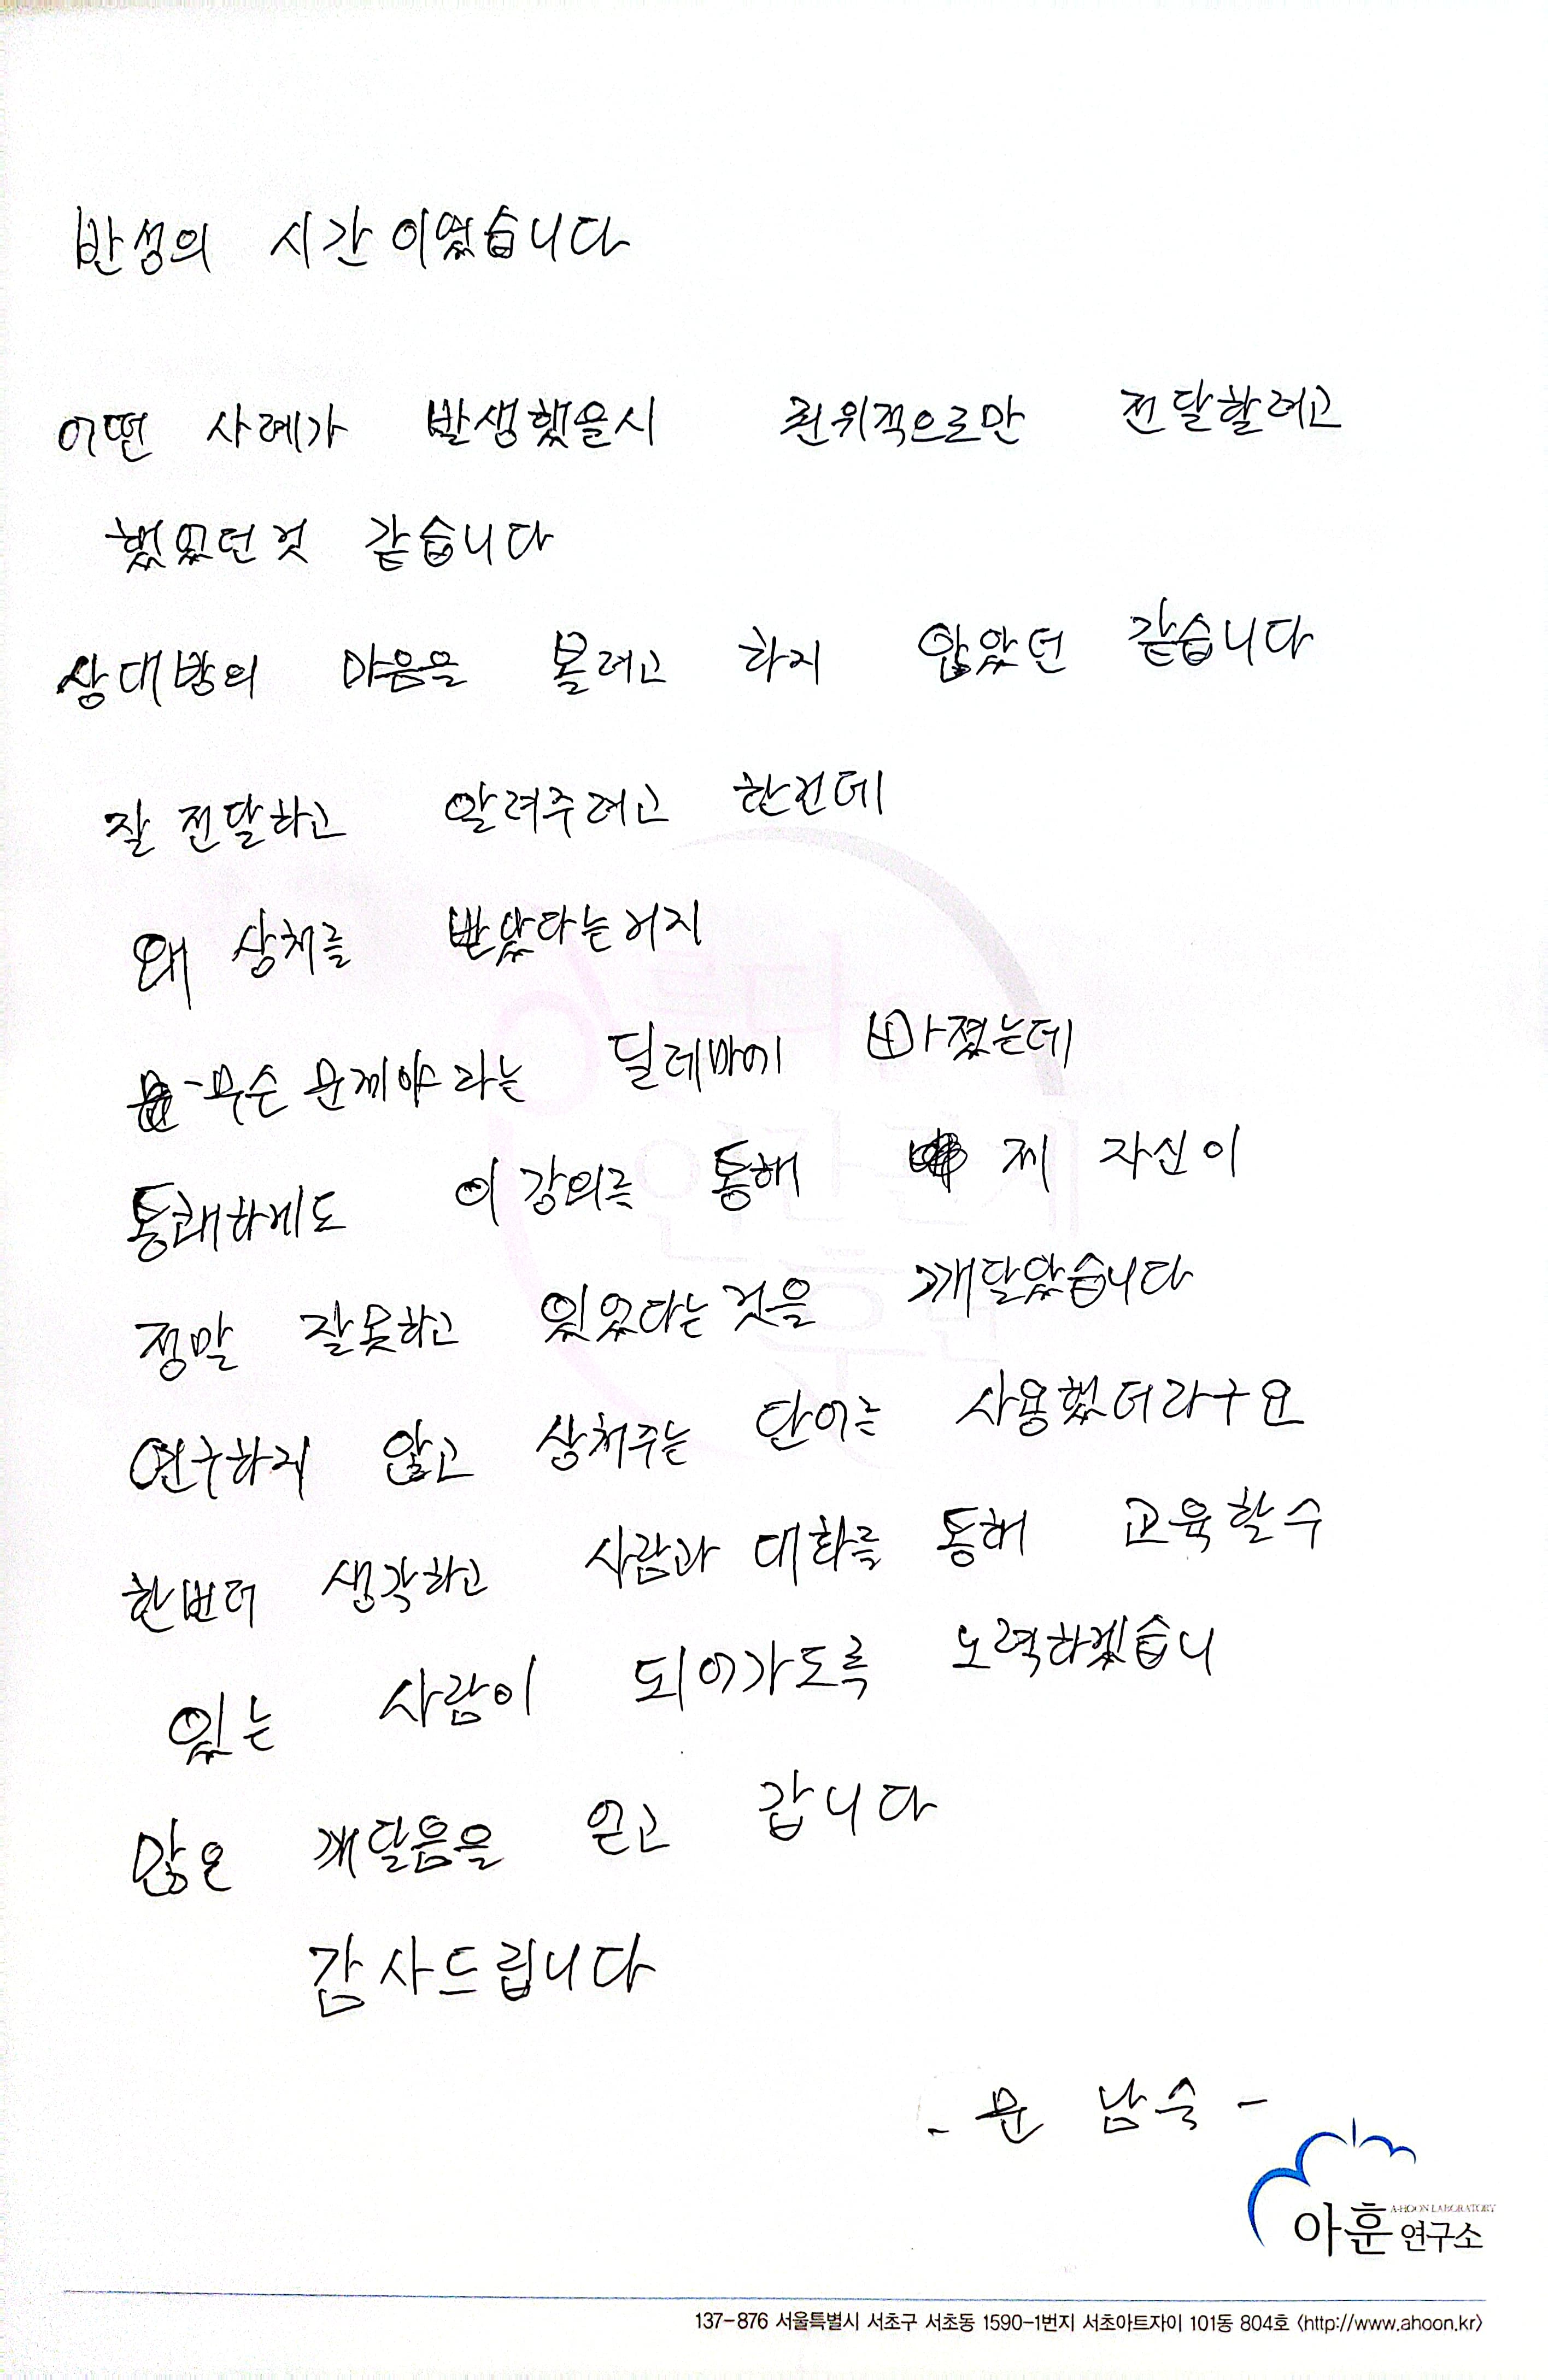 반성의 시간이였습니다
어떤 사례가 발생했을시 권위적으로만 전달할려고
했었던것 같습니다
상대방의 마음을 볼려고 하지 않았던 같습니다
잘 전달하고 알려주려고 한건데
왜 상처를 받았다는거지
무슨 문제야 라는 딜레마에 빠졌는데
통쾌하게도 이 강의를 통해 제 자신이
정말 잘못하고 있었다는것을 깨달았습니다
연구하지 않고 상처주는 단어를 사용했더라구요
한번더 생각하고 사람과 대화를 통해 교육할수
있는 사람이 되어가도록 노력하겠습니
많은 깨달음을 얻고 갑니다
감사드립니다
- 문남숙 -
A-HOON LABORATORY
아훈 연구소
137-876 서울특별시 서초구 서초동 1590-1번지 서초아트자이 101동 804호 <http://www.ahoon.kr>